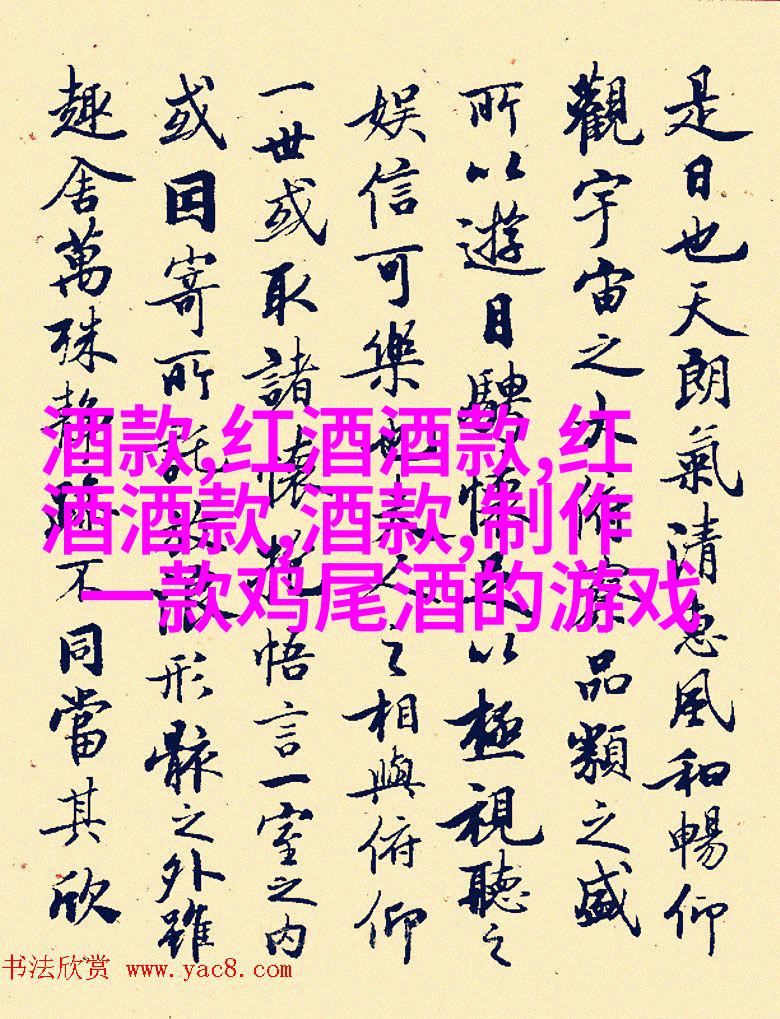 是日也天朗氣清惠風和暢仰
觀宇宙之大俯察品類之盛
所以遊目騁懷足以極視聽之
娱信可樂也夫人之相與俯仰
一世或取諸懷抱悟言一室之内
或因寄所託放浪形骸之外雖
趣舍萬殊静躁不同當其欣
酒款,红酒酒款,红
酒酒款,酒款,制作
一款鸡尾酒的游戏
书法欣赏 www.yac8.com